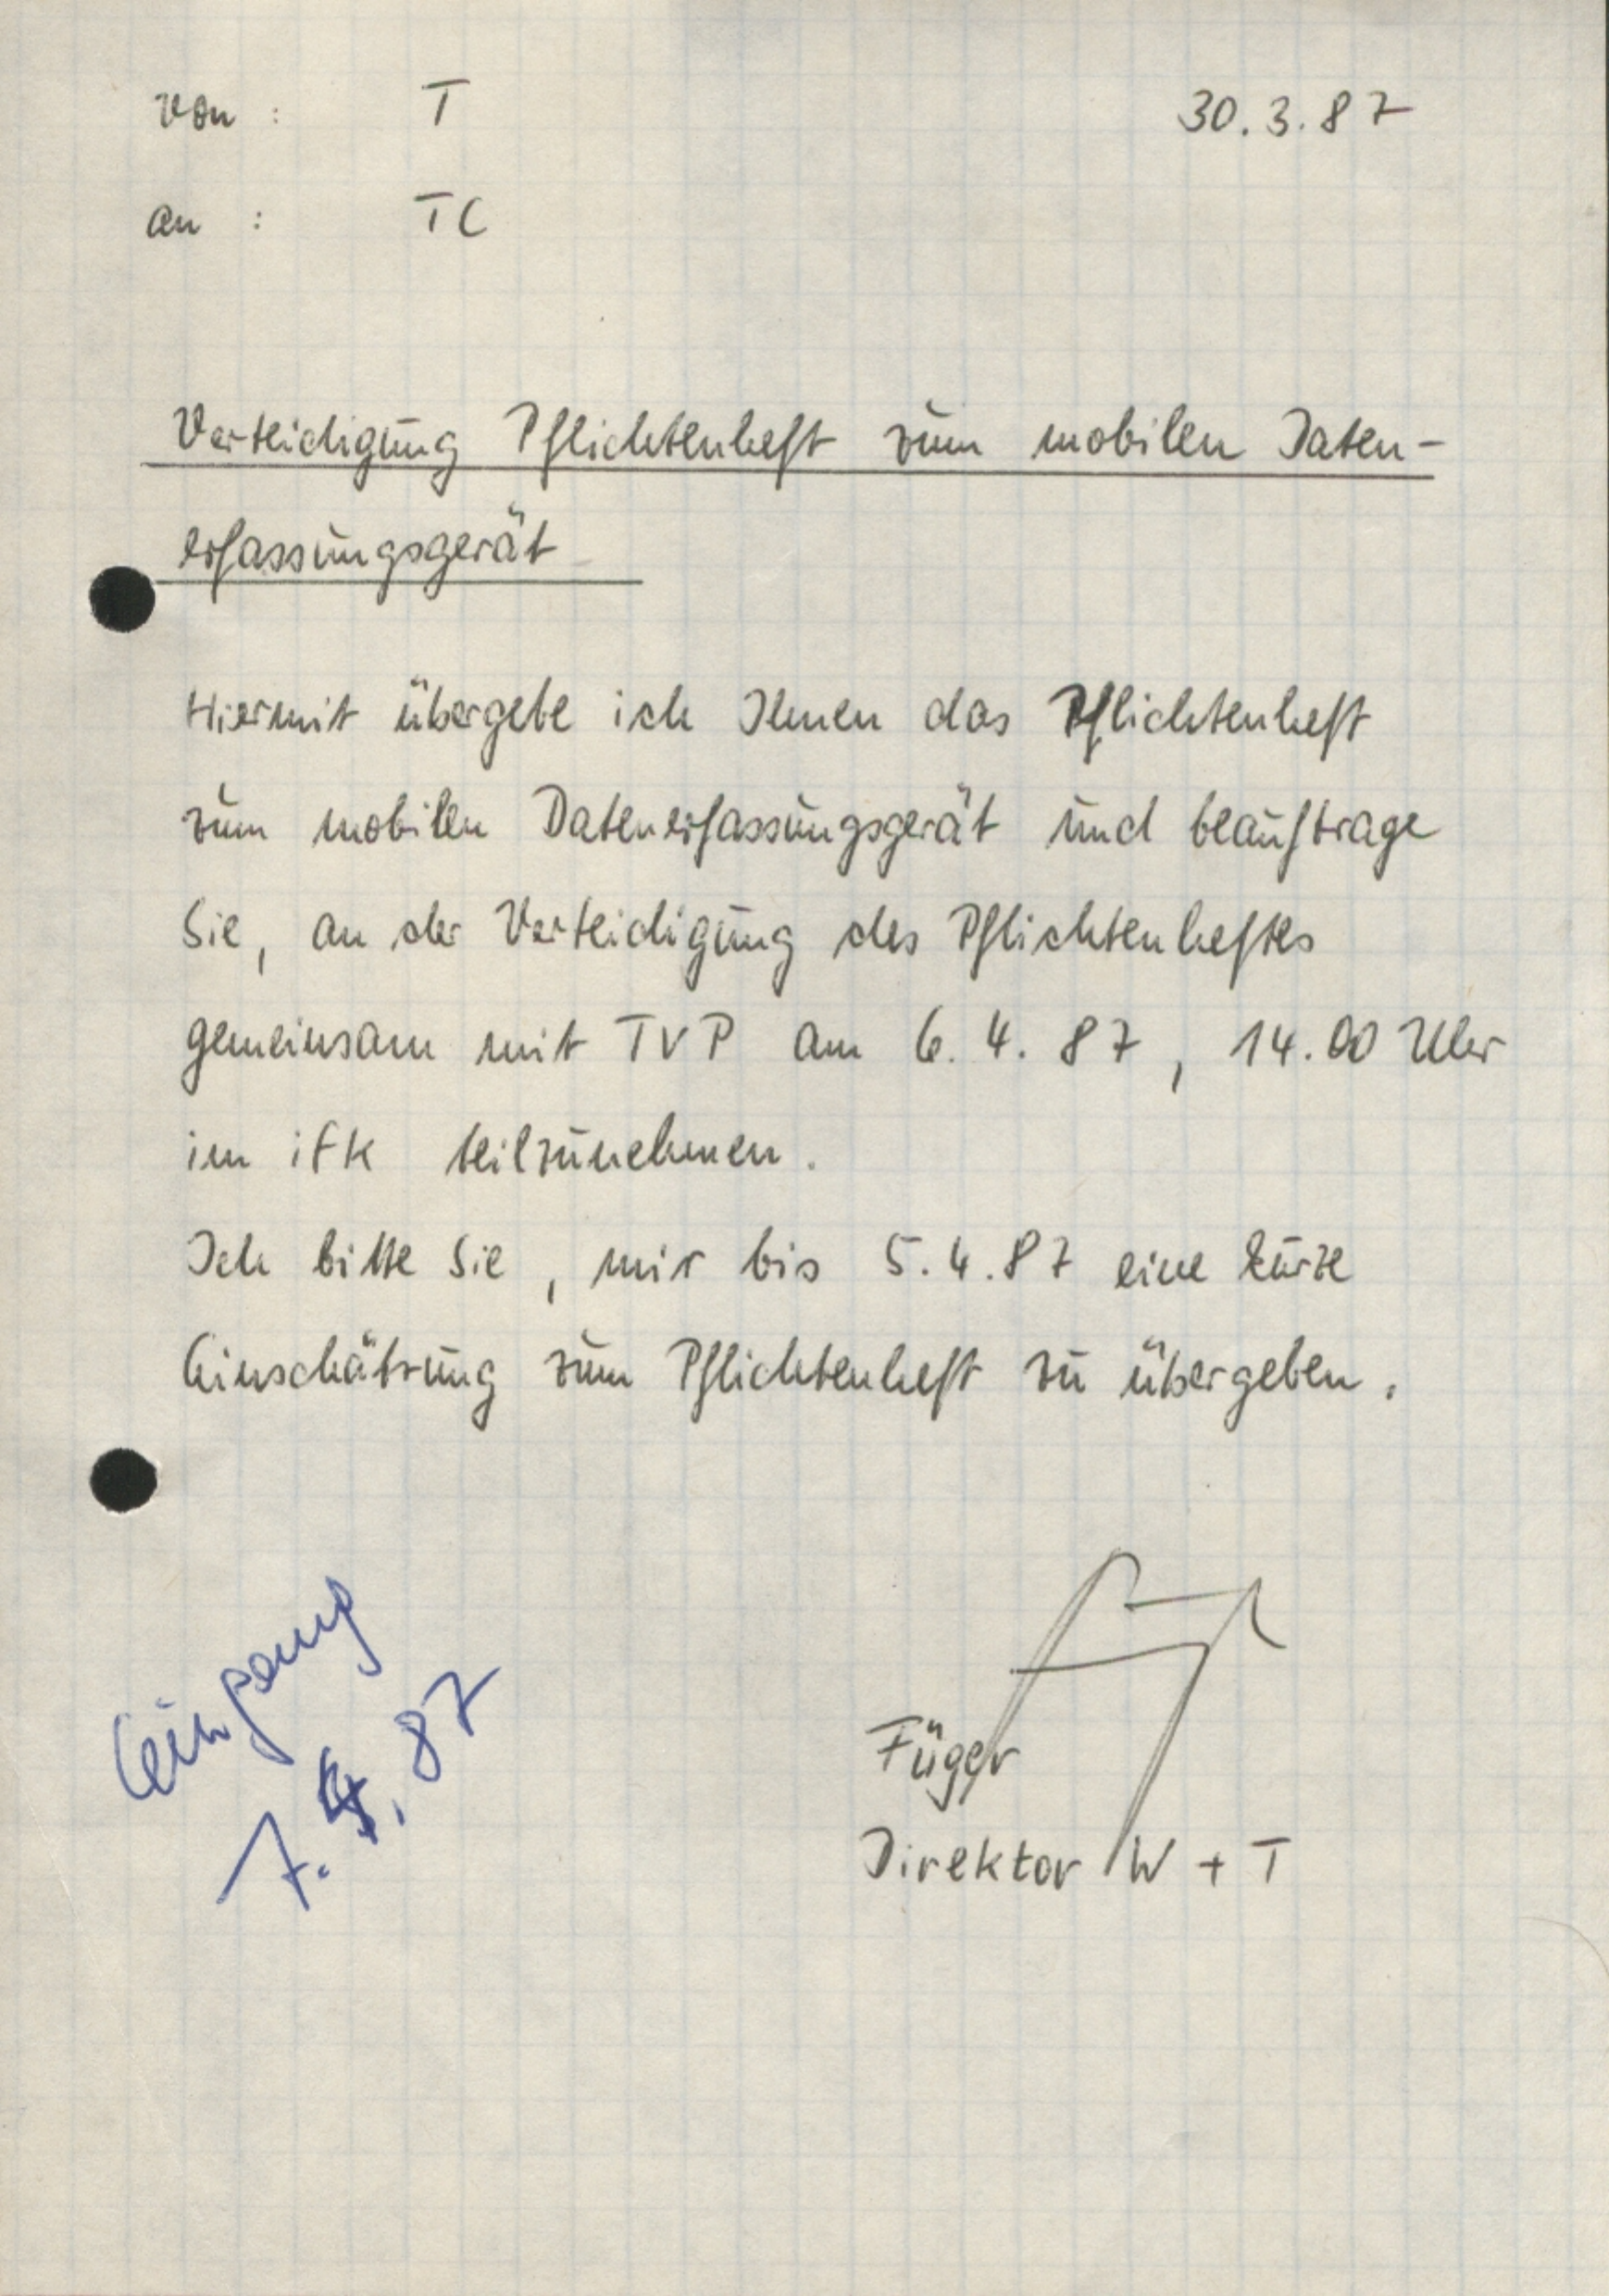 Von : T 30.3.87
an : TC
Verteidigung Pflichtenheft zum mobilen Daten-
erfassungsgerät
Hiermit übergebe ich Ihnen das Pflichtenheft
zum mobilen Datenerfassungsgerät und beauftrage
Sie, an der Verteidigung des Pflichtenheftes
gemeinsam mit TVP am 6.4.87, 14.00 Uhr
im ifk teilzunehmen.
Ich bitte Sie, mir bis 5.4.87 eine kurze
Einschätzung zum Pflichtenheft zu übergeben.
Eingang
7.4.87
Füger
Direktor W + T